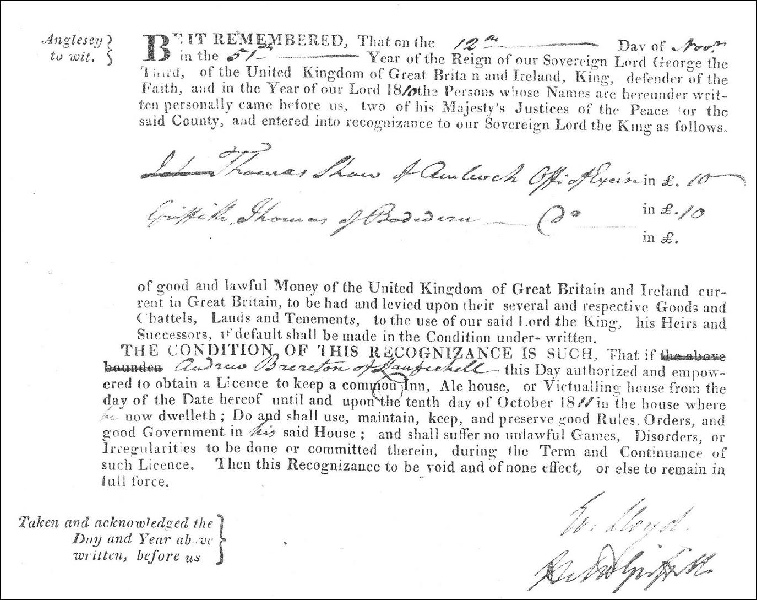 Anglesey
to wit.
BE IT REMEMBERED, That on the 12th Day of Novr
in the 51st Year of the Reign of our Sovereign Lord George the
Third, of the United Kingdom of Great Britain and Ireland, King, defender of the
Faith, and in the Year of our Lord 1810 the Persons whose Names are hereunder writ-
ten personally came before us, two of his Majesty's Justices of the Peace for the
said County, and entered into recognizance to our Sovereign Lord the King as follows.
John Thomas Shaw of Amlwch Offi of Excise in £. 10
Griffith Thomas of Bodedern Do in £. 10
in £.
of good and lawful Money of the United Kingdom of Great Britain and Ireland cur-
rent in Great Britain, to be had and levied upon their several and respective Goods and
Chattels, Lands and Tenements, to the use of our said Lord the King, his Heirs and
Successors, if default shall be made in the Condition under-written.
THE CONDITION OF THIS RECOGNIZANCE IS SUCH, That if the above
bounden Andrew Brereton of this Day authorized and empow-
ered to obtain a Licence to keep a common Inn, Ale house, or Victualling house from the
day of the Date hereof until and upon the tenth day of October 1811 in the house where
he now dwelleth; Do and shall use, maintain, keep, and preserve good Rules. Orders, and
good Government in his said House; and shall suffer no unlawful Games, Disorders, or
Irregularities to be done or committed therein, during the Term and Continuance of
such Licence, Then this Recognizance to be void and of none effect, or else to remain in
full force.
Taken and acknowledged the
Day and Year above
written, before us
Lloyd
Griffith